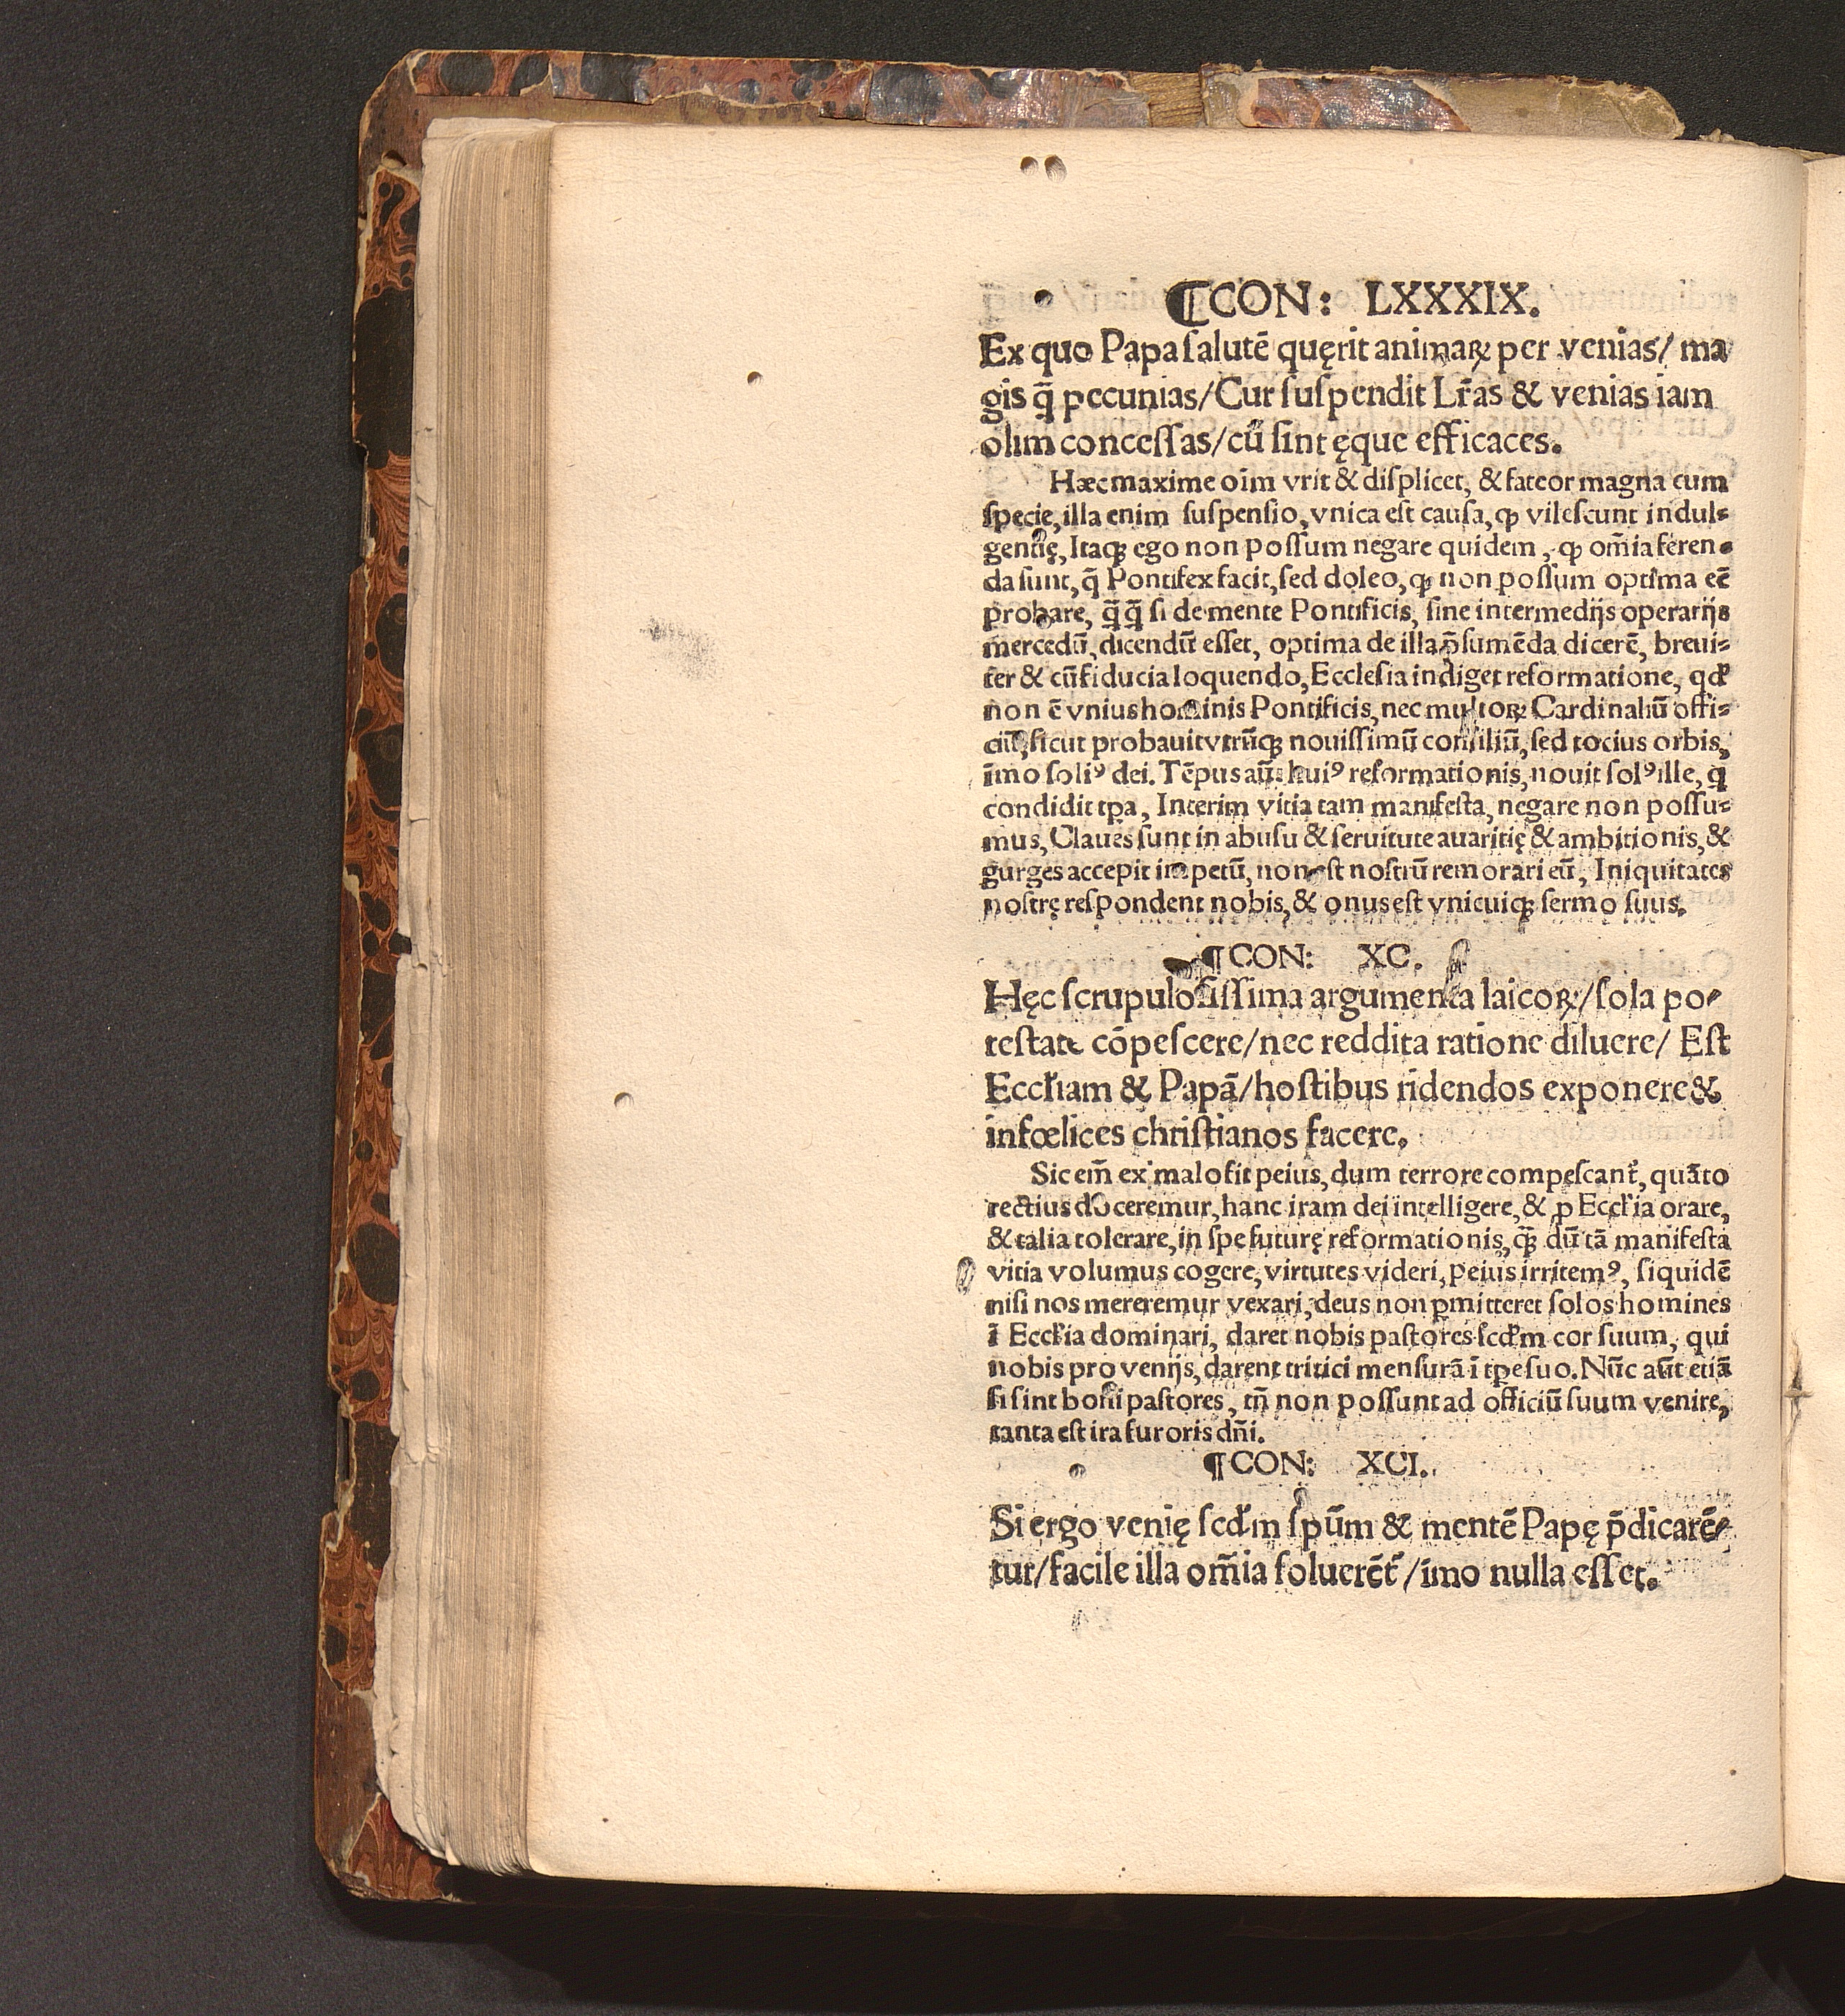 ¶CON: LXXXIX.
Ex quo Papa ſalutē quęrit animaꝝ per venias/ ma
gis q̄ pecunias/Cur ſuſpendit Lr̄as & venias iam
olim conceſſas/cū ſint ęque efficaces.
Hæc maxime oīm vrit & diſplicet, & fateor magna cum
ſpecie, illa enim ſuſpenſio, vnica eſt cauſa, ꝙ vileſcunt indul⸗
gentię, Itaqꝫ ego non poſſum negare quidem, ꝙ om̄ia feren⸗
da ſunt, q̄ Pontifex facit, ſed doleo, ꝙ non poſſum optima eē
probare, q̄q̄ ſi de mente Pontificis, ſine intermedijs operarijs
mercedū, dicendū eſſet, optima de illa p̄ſumēda dicerē, breui⸗
ter & cū fiducia loquendo, Eccleſia indiget reformatione, qd̛
non ē vnius hominis Pontificis, nec multoꝝ Cardinaliū offi⸗
ciū, ſicut probauit vtrūqꝫ nouiſſimū conſiliū, ſed tocius orbis,
īmo ſoliꝰ dei. Tēpus aū. huiꝰ reformationis, nouit ſolꝰ ille, q̇
condidit tp̄a, Interim vitia tam manifeſta, negare non poſſu⸗
mus, Claues ſunt in abuſu & ſeruitute auaritię & ambitionis, &
gurges accepit impetū, non eſt noſtrū remorari eū, Iniquitates
noſtrę reſpondent nobis, & onus eſt vnicuiqꝫ ſermo ſuus.
¶CON: XC.
Hęc ſcrupuloſiſſima argumenta laicoꝝ/ſola po⸗
teſtate cōpeſcere/nec reddita ratione diluere/ Eſt
Eccl̄iam & Papā/hoſtibus ridendos exponere &
infœlices chriſtianos facere.
Sic em̄ ex malo fit peius, dum terrore compeſcant᷑, quāto
rectius doceremur, hanc iram dei intelligere, & ꝓ Eccl̄ia orare,
& talia tolerare, in ſpe futurę reformationis, q̄ꝫ dū tā manifeſta
vitia volumus cogere, virtutes videri, peius irritemꝰ, ſiquidē
niſi nos mereremur vexari, deus non ꝑmitteret ſolos homines
ī Eccl̄ia dominari, daret nobis paſtores ſcd̛m cor ſuum, qui
nobis pro venijs, darent tritici menſurā ī tꝑe ſuo. Nūc aūt etiā
ſi ſint boni paſtores, tn̄ non poſſunt ad officiū ſuum venire,
tanta eſt ira furoris dn̄i.
¶CON: XCI.
Si ergo venię ſcd̛m ſpūm & mentē Papę p̄dicarē⸗
tur/facile illa om̄ia ſoluerēt᷑/īmo nulla eſſet.